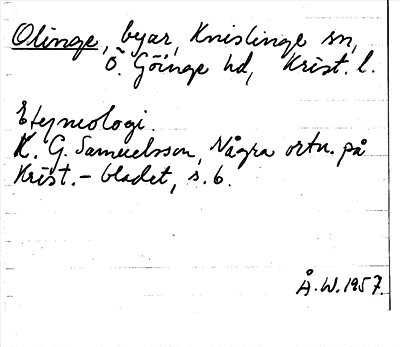 Olinge, byar, Knislinge sn,
Ö. Göinge hd, Krist. l.
Etymologi.
K. G. Samuelsson, Några ortn. på
Krist.-bladet, s. 6.
Å. W. 1957.